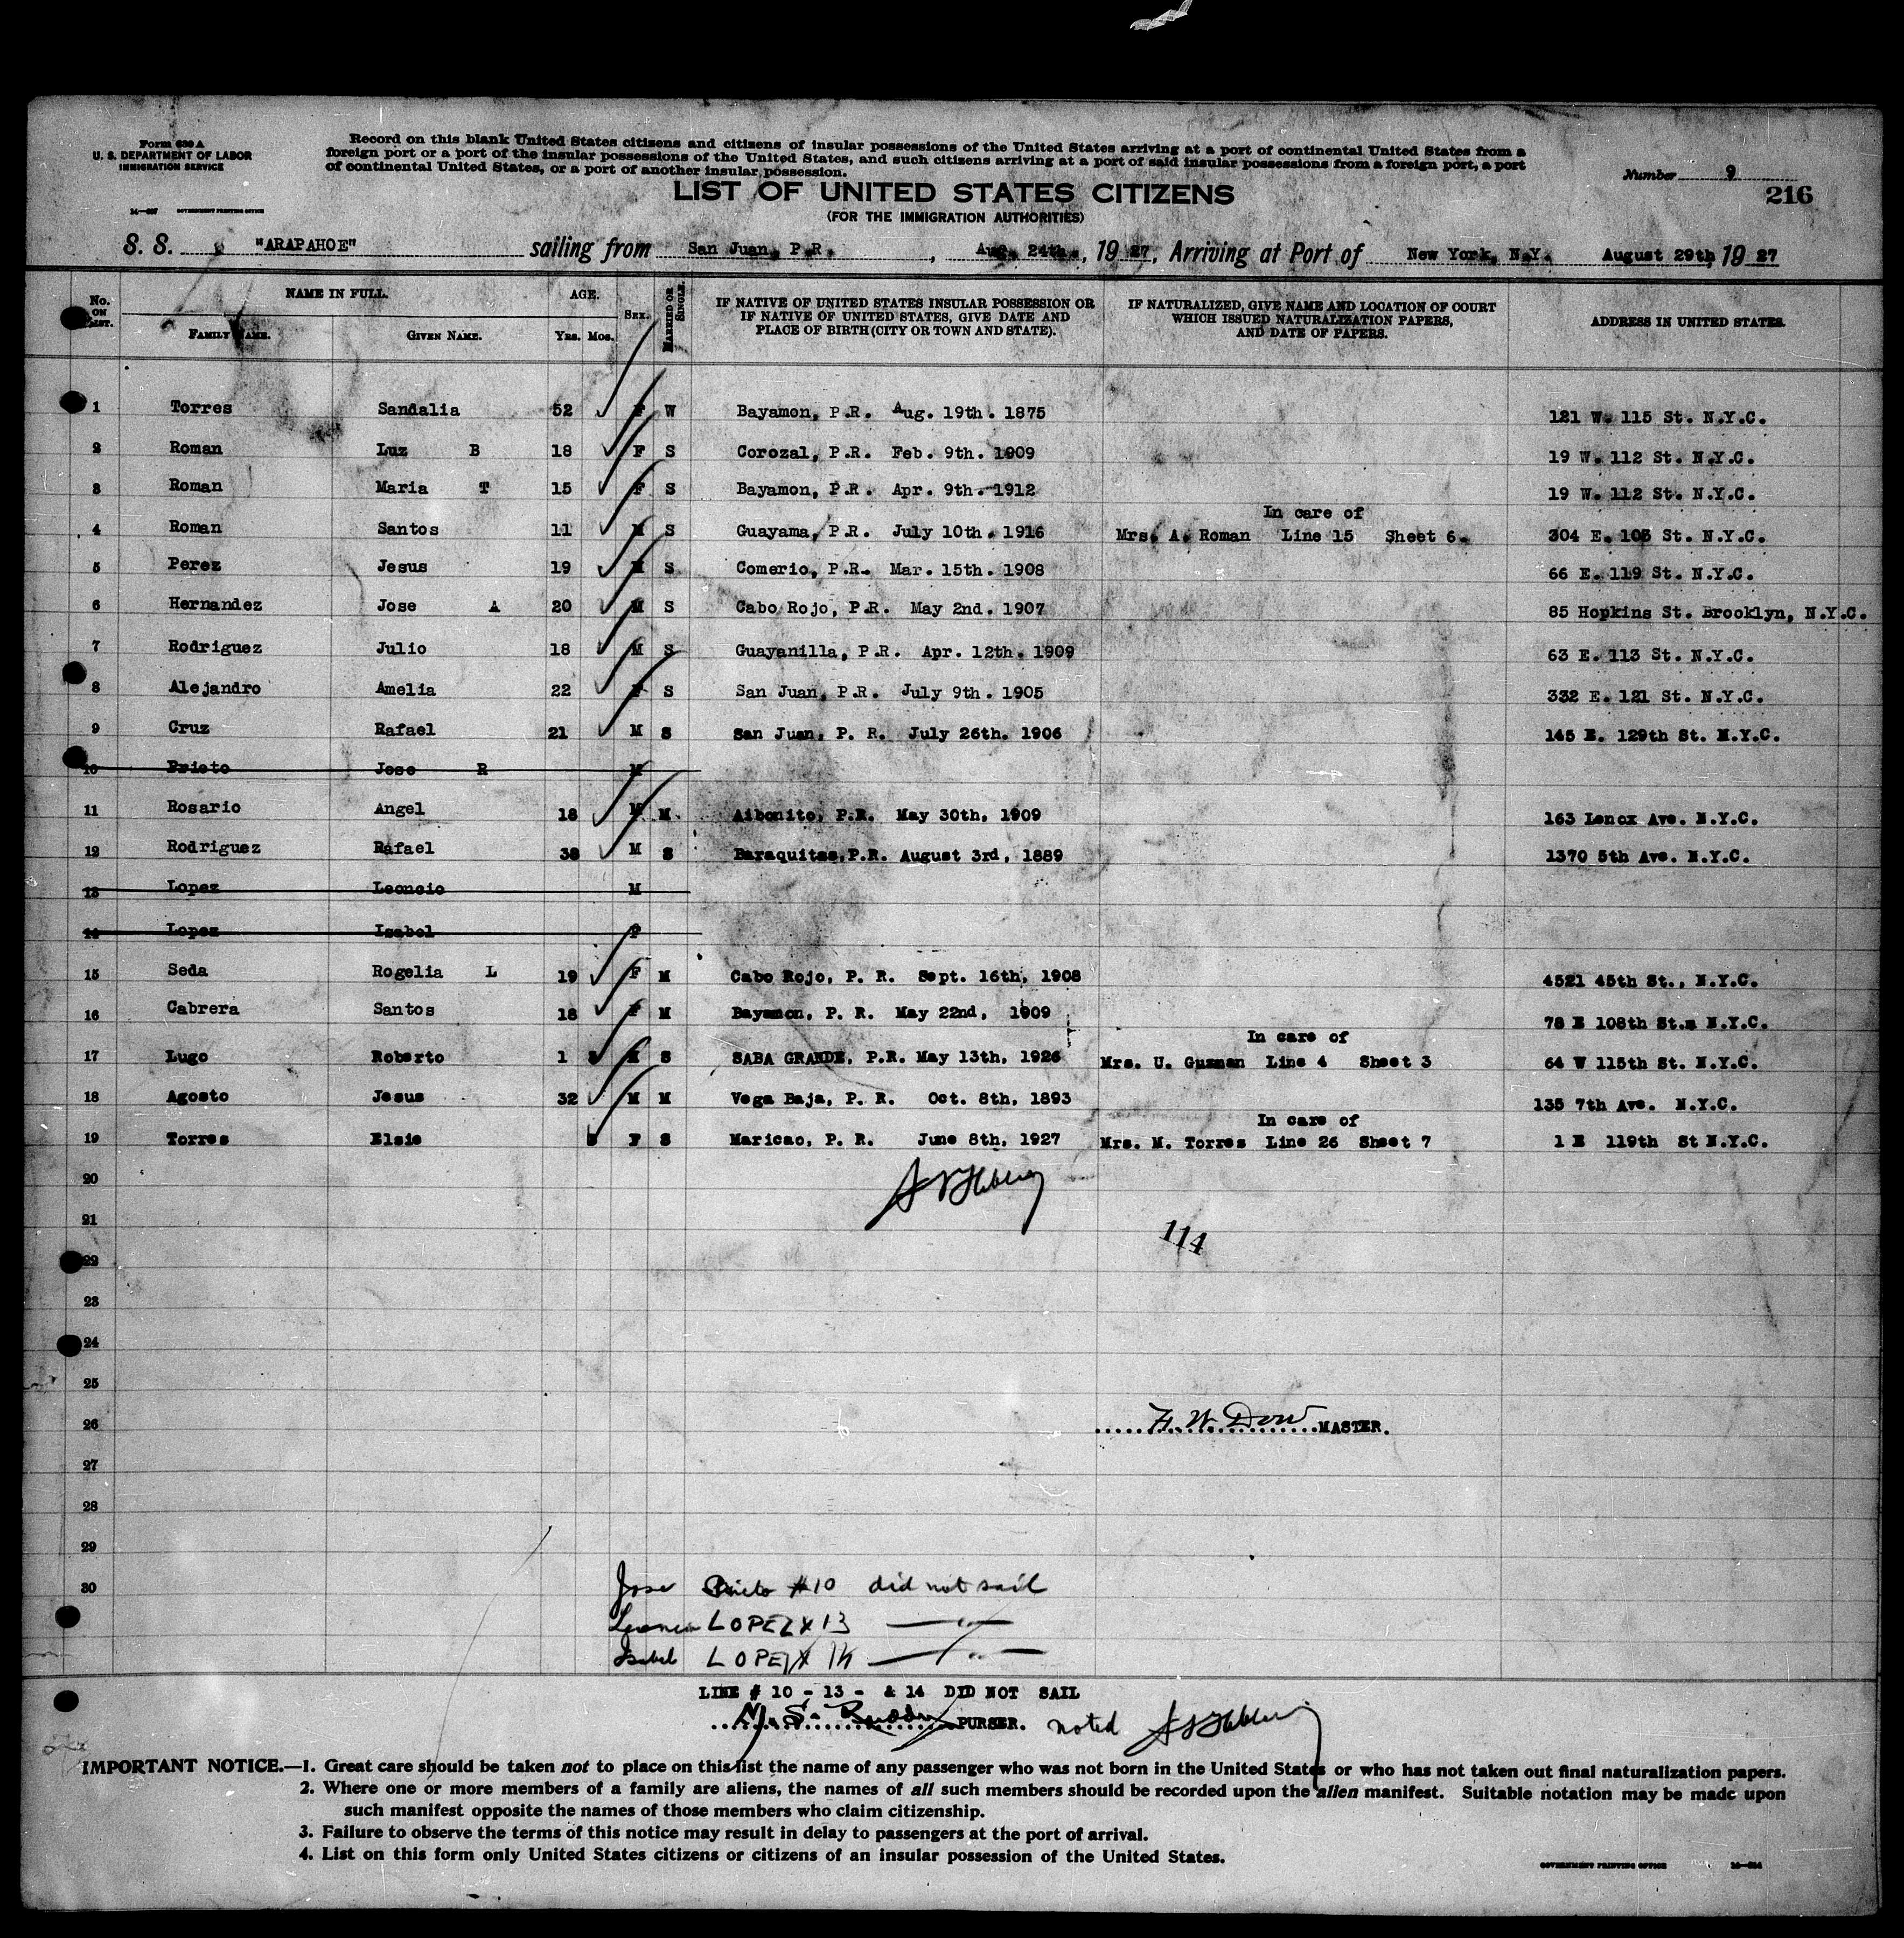 Form 630 A
U. S. DEPARTMENT OF LABOR
IMMIGRATION SERVICE
Record on this blank United States citizens and citizens of insular possessions of the United States arriving at a port of continental United States from a
foreign port or a port of the insular possessions of the United States, and such citizens arriving at a port of said insular possessions from a foreign port, a port
of continental United States, or a port of another insular possession.
Number 9
216
LIST OF UNITED STATES CITIZENS
(FOR THE IMMIGRATION AUTHORITIES)
GOVERNMENT PRINTING OFFICE
S. S. "ARAPAHOE" sailing from San Juan, P.R., Aug. 24th., 1927, Arriving at Port of New York, N.Y. August 29th, 1927
No. ON LIST. NAME IN FULL. FAMILY NAME. GIVEN NAME. AGE. YRS. MOS. SEX. MARRIED OR SINGLE. IF NATIVE OF UNITED STATES INSULAR POSSESSION OR IF NATIVE OF UNITED STATES, GIVE DATE AND PLACE OF BIRTH (CITY OR TOWN AND STATE). IF NATURALIZED, GIVE NAME AND LOCATION OF COURT WHICH ISSUED NATURALIZATION PAPERS, AND DATE OF PAPERS. ADDRESS IN UNITED STATES.
1 Torres Sandalia 52 F W Bayamon, P.R. Aug. 19th. 1875 121 W. 115 St. N.Y.C.
2 Roman Luz B 18 F S Corozal, P.R. Feb. 9th. 1909 19 W. 112 St. N.Y.C.
3 Roman Maria T 15 F S Bayamon, P.R. Apr. 9th. 1912 19 W. 112 St. N.Y.C.
In care of
4 Roman Santos 11 M S Guayama, P.R. July 10th. 1916 Mrs. A. Roman Line 15 Sheet 6. 304 E. 103 St. N.Y.C.
5 Perez Jesus 19 M S Comerio, P.R. Mar. 15th. 1908 66 E. 119 St. N.Y.C.
6 Hernandez Jose A 20 M S Cabo Rojo, P.R. May 2nd. 1907 85 Hopkins St. Brooklyn, N.Y.C.
7 Rodriguez Julio 18 M S Guayanilla, P.R. Apr. 12th. 1909 63 E. 113 St. N.Y.C.
8 Alejandro Amelia 22 F S San Juan, P.R. July 9th. 1905 332 E. 121 St. N.Y.C.
9 Cruz Rafael 21 M S San Juan, P. R. July 26th. 1906 145 E. 129th St. N.Y.C.
10 Prieto Jose R M
11 Rosario Angel 18 M M Aibonito, P.R. May 30th, 1909 163 Lenox Ave. N.Y.C.
12 Rodriguez Rafael 38 M S Baraquitas, P.R. August 3rd, 1889 1370 5th Ave. N.Y.C.
13 Lopez Leoncio M
14 Lopez Isabel F
15 Seda Rogelia L 19 F M Cabo Rojo, P. R. Sept. 16th, 1908 4521 45th St., N.Y.C.
16 Cabrera Santos 18 F M Bayamon, P. R. May 22nd, 1909 78 E 108th St. N.Y.C.
In care of
17 Lugo Roberto 1 3 M S SABA GRANDE, P.R. May 13th, 1926 Mrs. U. Guzman Line 4 Sheet 3 64 W 115th St. N.Y.C.
18 Agosto Jesus 32 M M Vega Baja, P. R. Oct. 8th, 1893 135 7th Ave. N.Y.C.
In care of
19 Torres Elsie F S Maricao, P. R. June 8th, 1927 Mrs. M. Torres Line 26 Sheet 7 1 E 119th St N.Y.C.
20
21
114
22
23
24
25
26 F. W. Dow MASTER.
27
28
29
30
Jose Prieto #10 did not sail
Leoncio LOPEZ X 13 — " —
Isabel LOPEZ X 14 — " —
LINE # 10 - 13 - & 14 DID NOT SAIL
PURSER. noted
IMPORTANT NOTICE.—1. Great care should be taken not to place on this list the name of any passenger who was not born in the United States or who has not taken out final naturalization papers.
2. Where one or more members of a family are aliens, the names of all such members should be recorded upon the alien manifest. Suitable notation may be made upon
such manifest opposite the names of those members who claim citizenship.
3. Failure to observe the terms of this notice may result in delay to passengers at the port of arrival.
4. List on this form only United States citizens or citizens of an insular possession of the United States.
GOVERNMENT PRINTING OFFICE